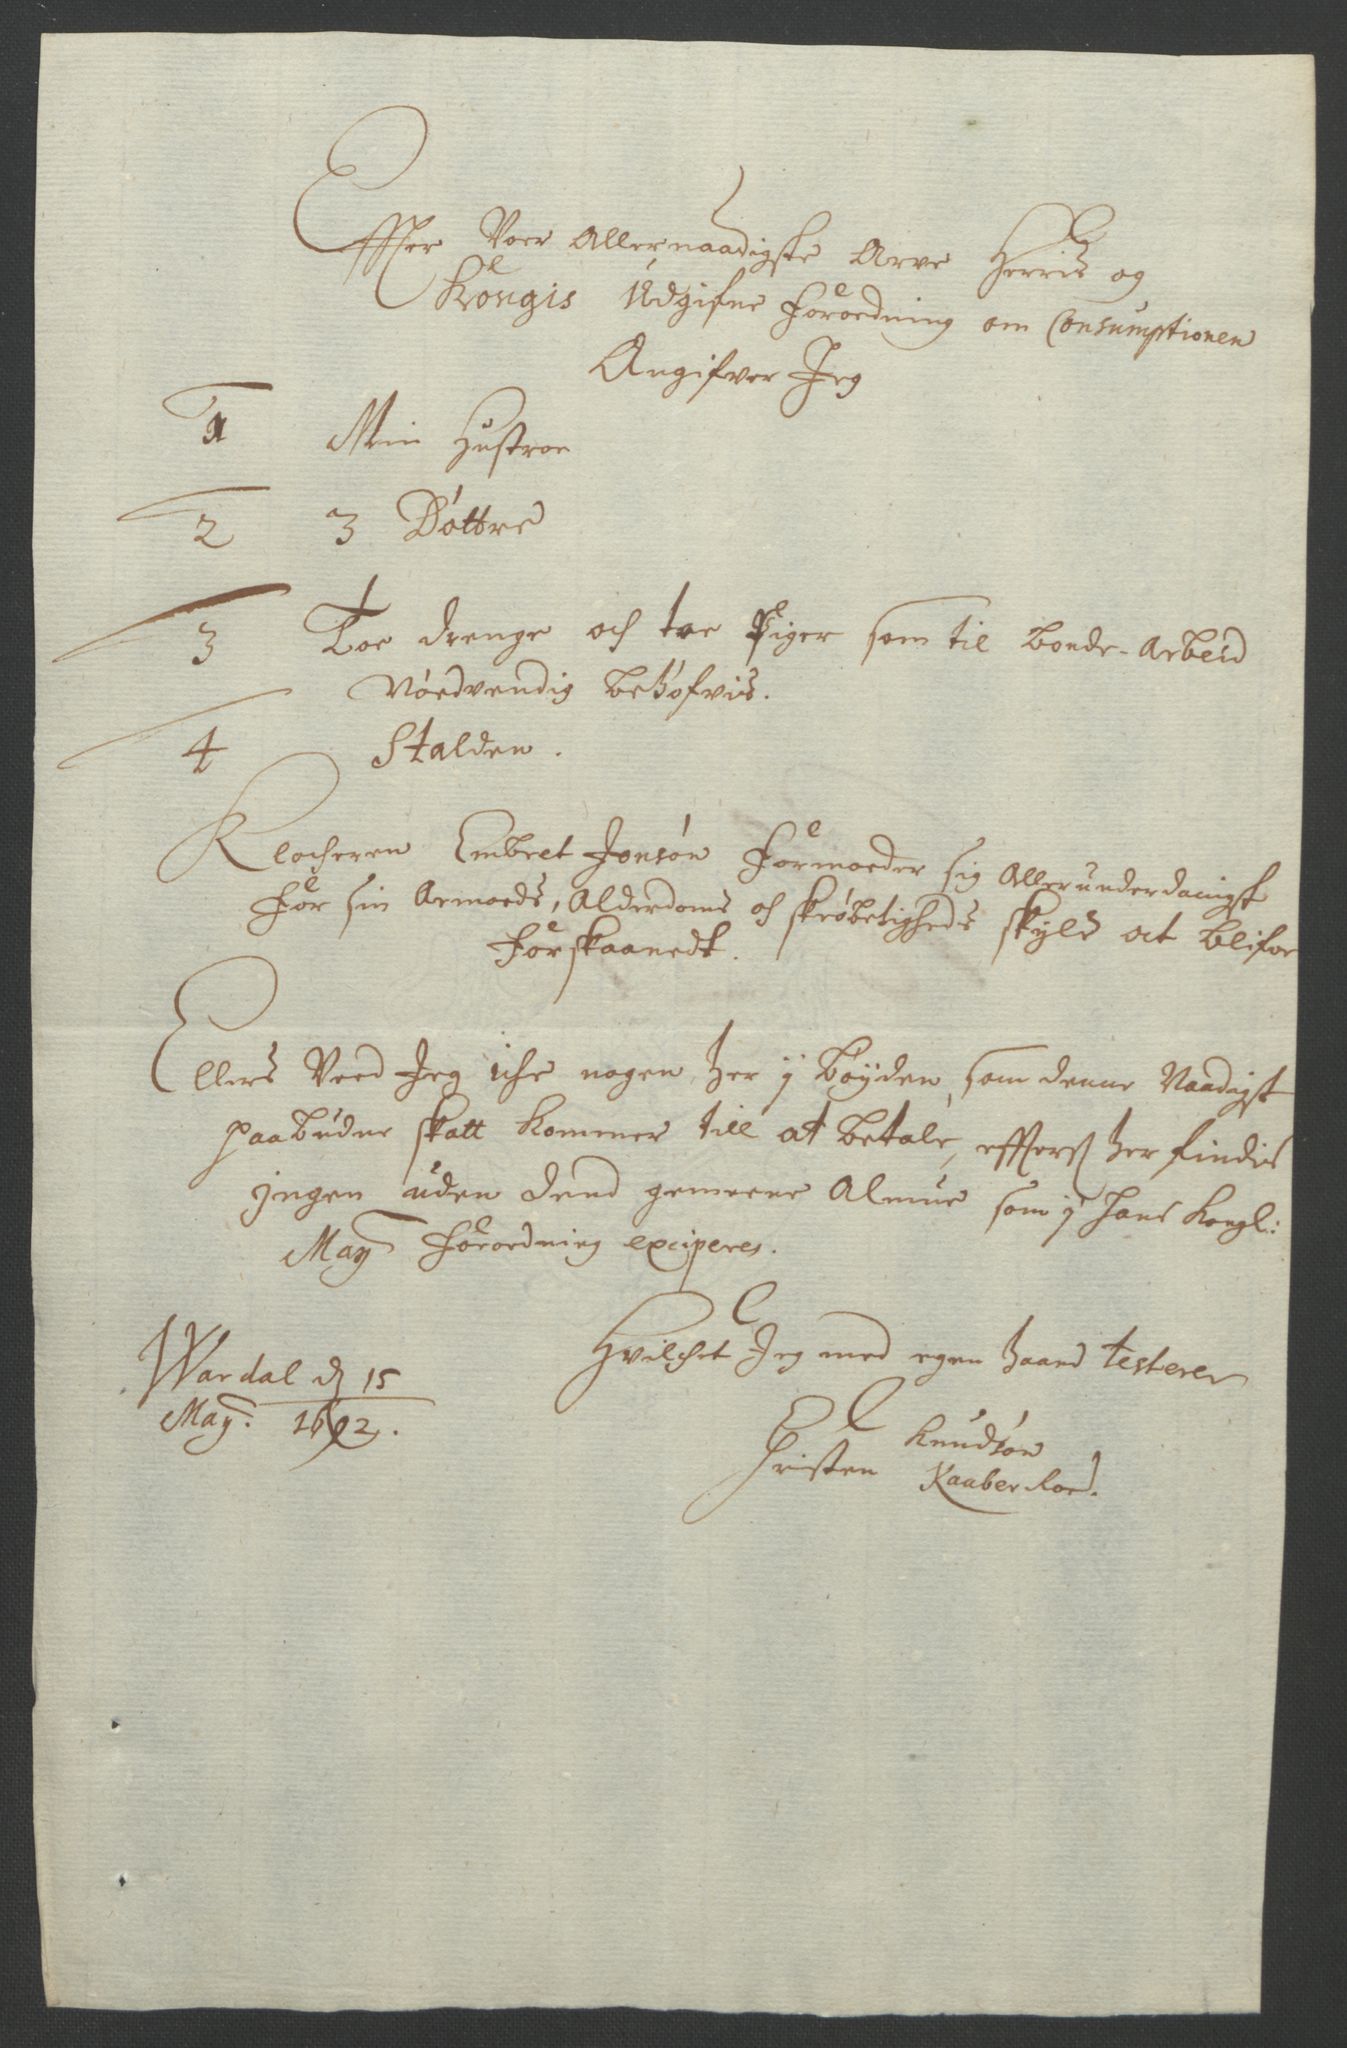 Effter Voer Allernaadigste Arve Herris og
Kongis Udgifne Forordning om Consumptionen
Angifver Jeg
1 Min Hustroe
2 3 Døttre
3 Toe drenge och toe Piger som til bonde-Arbeid
Nødvendig behøfvis.
4 Stalden.
Klocheren Embret Jonsøn Formoeder sig Allerunderdanigst
For sin Armoeds, Alderdoms och skrøbeligheds skyld at blifve
Forskaanedt.
Ellers Veed Jeg iche nogen her ÿ Bøyden, som denne Naadigst
paabudne skatt kommer till at betale, efftersom her findis
jngen uden dend gemeene Almue som ÿ Hans Kongl:
May Forordning exciperes.
Hvilchet Jeg med egen haand testerer
Wardal d 15
May. 1692.
Christen Knudsøn
Kaaberkoe.